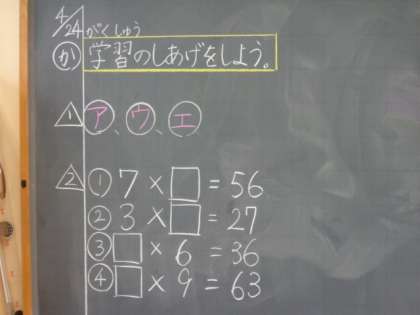 4/24 がくしゅう
か 学習のしあげをしよう。
1 ア、ウ、エ
2 ① 7 × □ = 56
② 3 × □ = 27
③ □ × 6 = 36
④ □ × 9 = 63